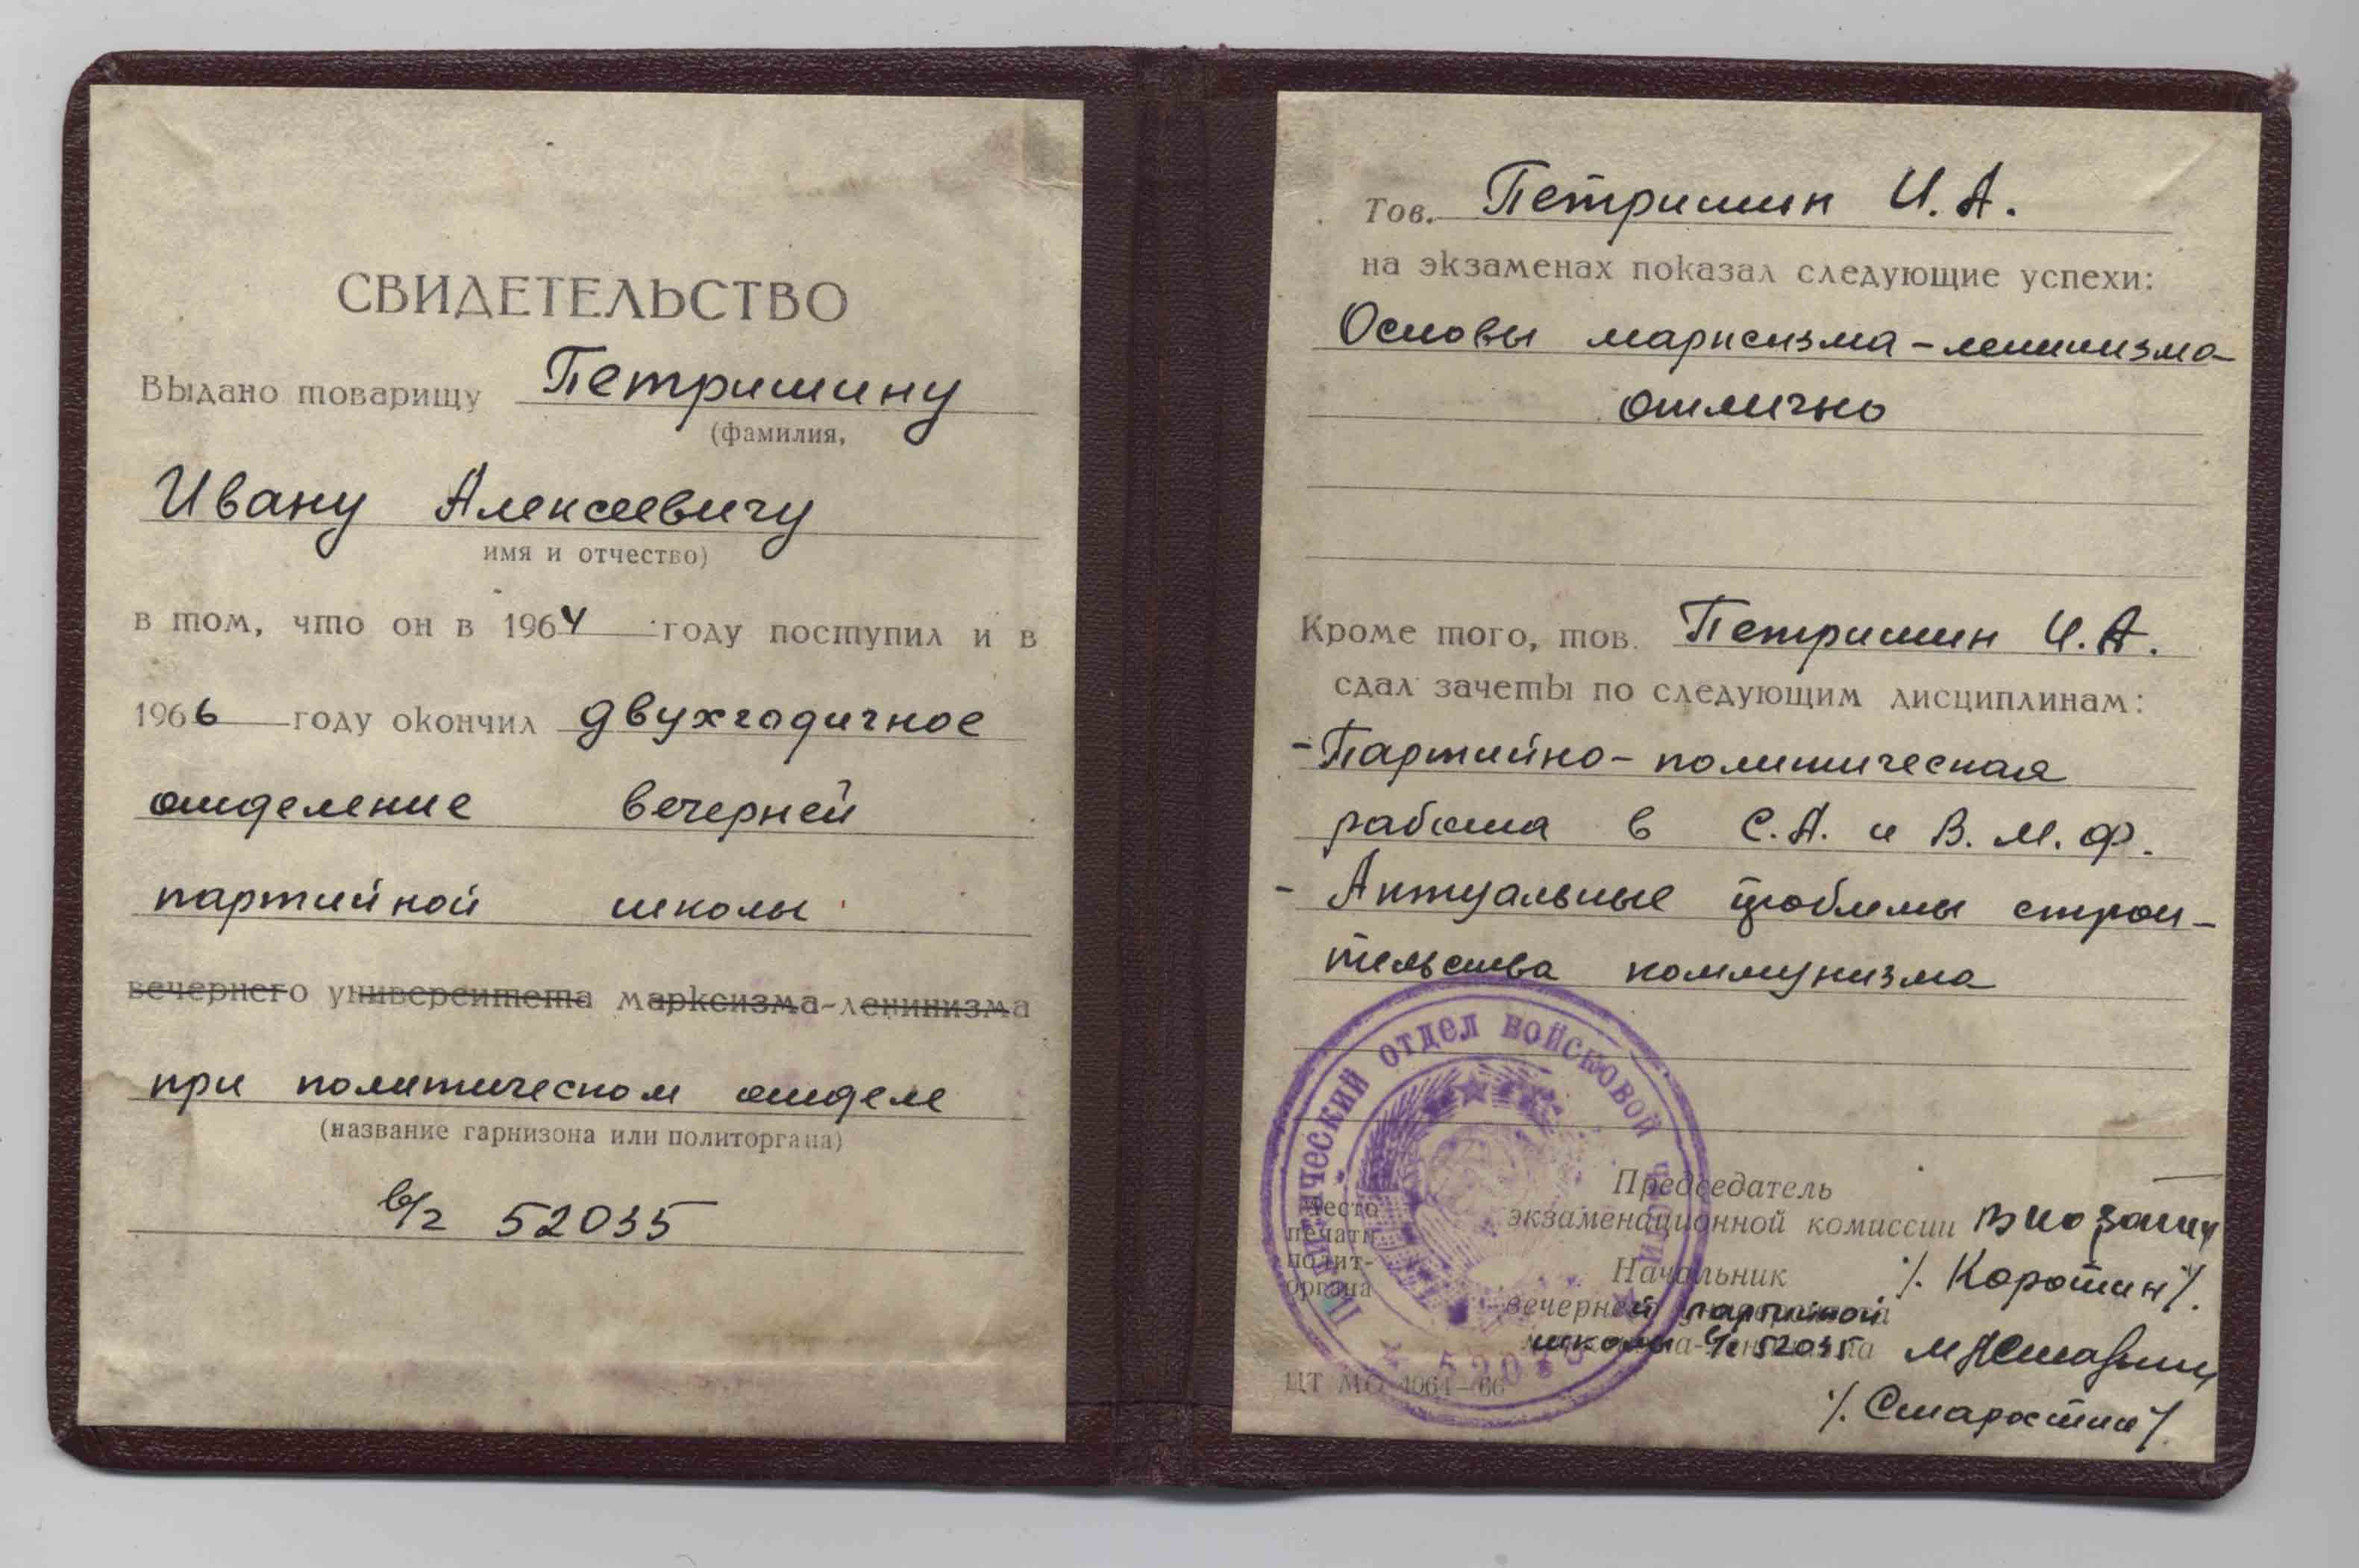 СВИДЕТЕЛЬСТВО
Выдано товарищу Петришину
(фамилия,
Ивану Алексеевичу
имя и отчество)
в том, что он в 1964 году поступил и в
1966 году окончил двухгодичное
отделение вечерней
партийной школы
вечернего университета марксизма-ленинизма
при политическом отделе
(название гарнизона или политоргана)
в/ч 52035
Тов. Петришин И. А.
на экзаменах показал следующие успехи:
Основы марксизма-ленинизма
отлично
Кроме того, тов. Петришин И. А.
сдал зачеты по следующим дисциплинам:
- Партийно-политическая
работа в С. А. и В. М. Ф.
- Актуальные проблемы строи-
тельства коммунизма
ПОЛИТИЧЕСКИЙ ОТДЕЛ ВОЙСКОВОЙ ЧАСТИ
52035
Место
печати
полит-
органа
Председатель
экзаменационной комиссии
Начальник /. Коротин/.
вечерней партийной
школы в/ч 52035
/. Старостин/.
ЦТ МО 1064—66